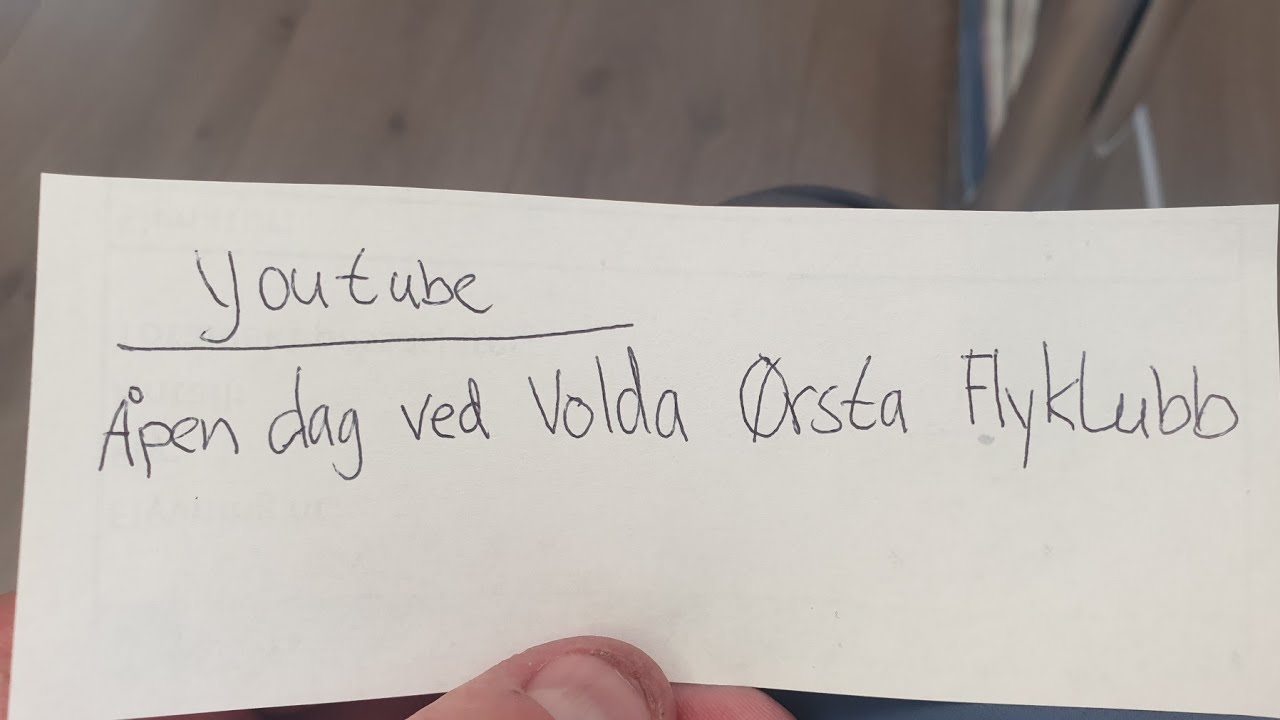 Youtube
Åpen dag ved Volda Ørsta Flyklubb